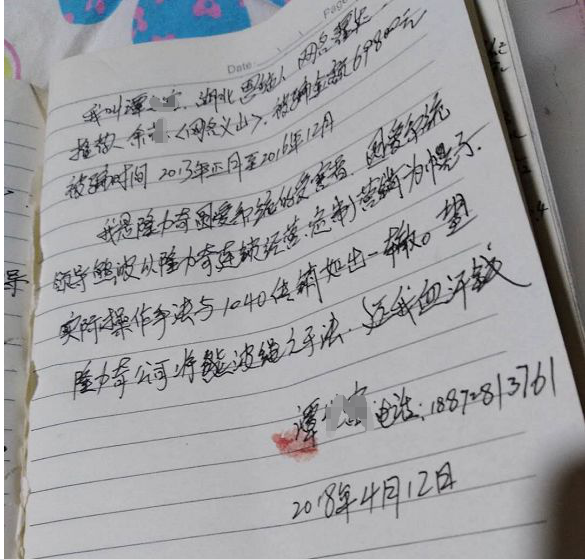 Date: Page
我叫谭 ,湖北恩施人,网名谭长
推款、余 〈网名义山〉,被骗金额69800元
被骗时间 2013年正月至2016年12月
我是隆力奇因爱系统的受害者,因爱系统
领导熊波以隆力奇连锁经营、定制营销为幌子.
实际操作手法与1040传销如出一辙。望
隆力奇公司将熊波绳之于法.还我血汗钱
谭 电话:18872813761
2018年4月12日
导